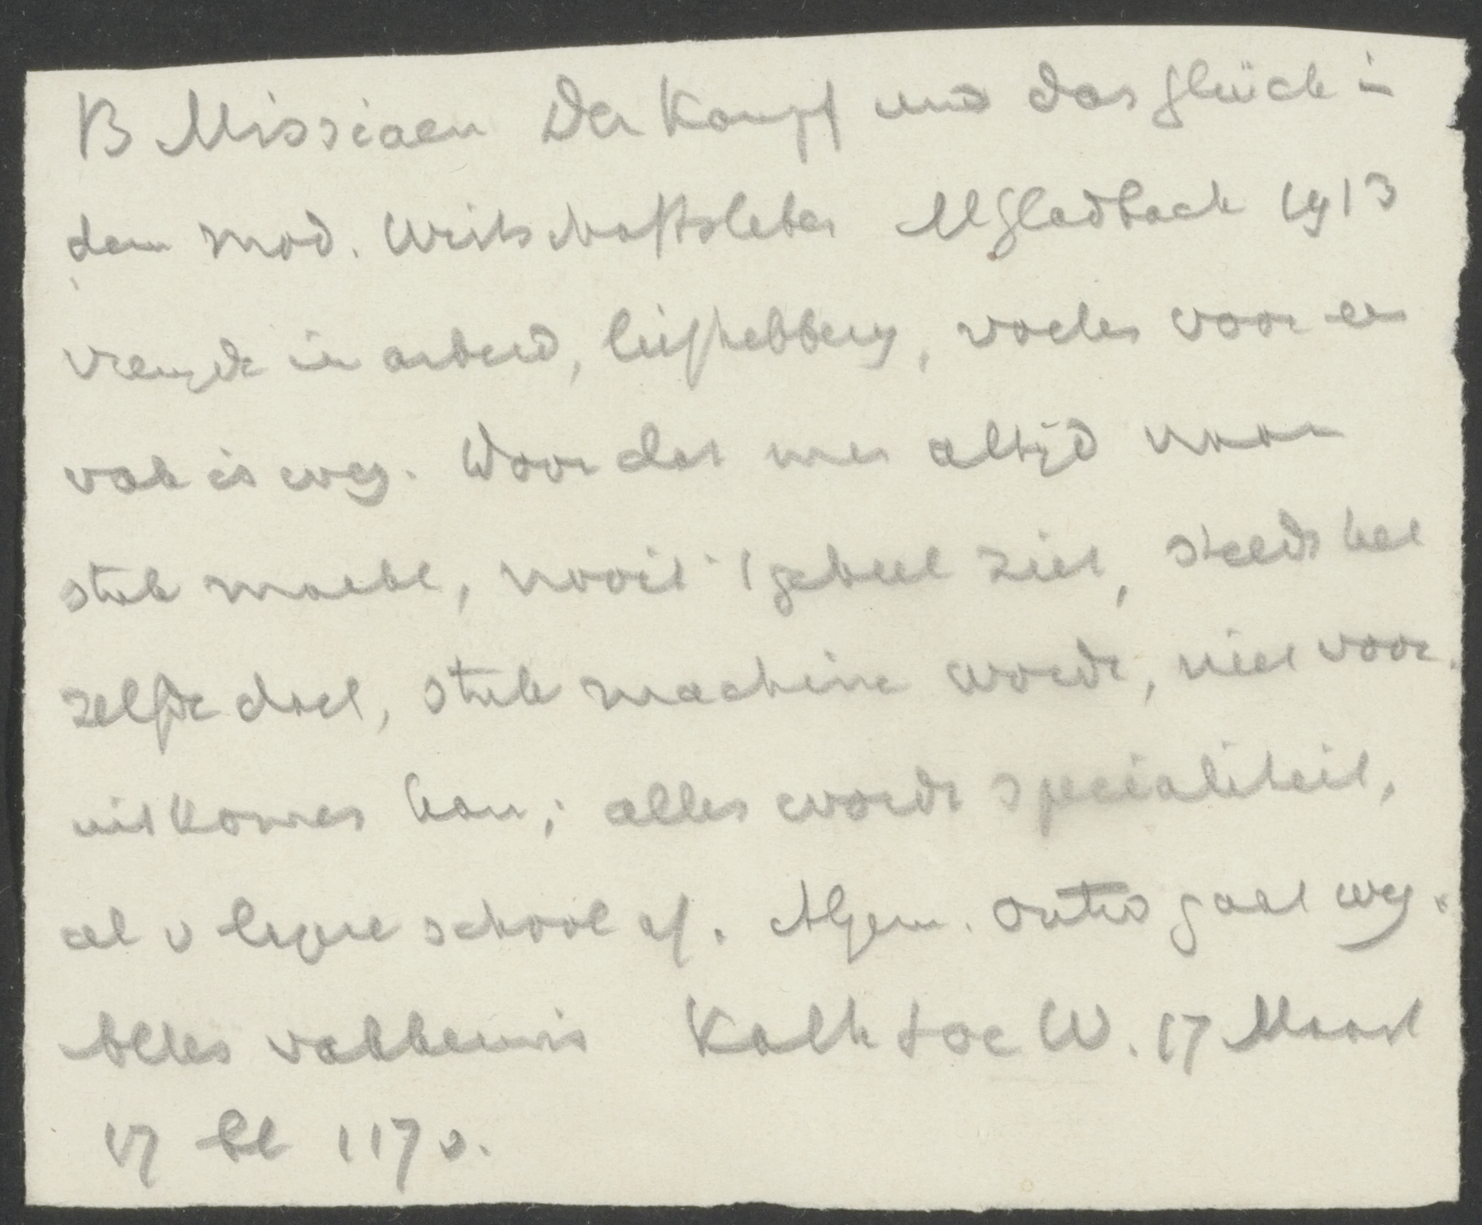 B Missiaen Der Kampf und das Glück in
dem mod. Wirtschaftsleben MGladbach 1913
vreugde in arbeid, liefhebberij, voelen voor een
vak is weg. Doordat men altijd maar
stuk maakt, nooit 't geheel ziet, steeds het
zelfde doet, stuk machine wordt, niet voor-
uitkomen kan; alles wordt specialiteit,
al v lagere school af. Algem. ontw gaat weg.
Alles vakkennis Kath Soc W. 17 Maart
17 bl 117v.